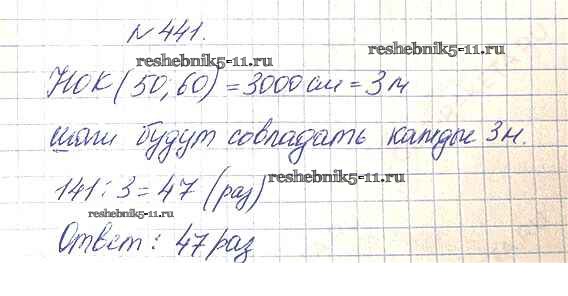 № 441.
reshebnik5-11.ru reshebnik5-11.ru
НОК (50; 60) = 3000 см = 3 м
шаги будут совпадать каждые 3 м.
141 : 3 = 47 (раз) reshebnik5-11.ru
reshebnik5-11.ru
Ответ: 47 раз